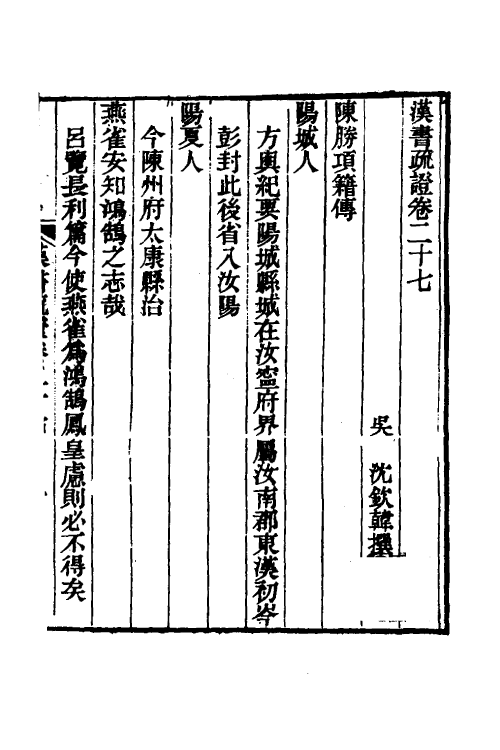 漢書疏證卷二十七
吳　沈欽韓撰
陳勝項籍傳
陽城人
方輿紀要陽城縣城在汝寧府界屬汝南郡東漢初岑
彭封此後省入汝陽
陽夏人
今陳州府太康縣治
燕雀安知鴻鵠之志哉
呂覽長利篇今使燕雀爲鴻鵠鳳皇慮則必不得矣